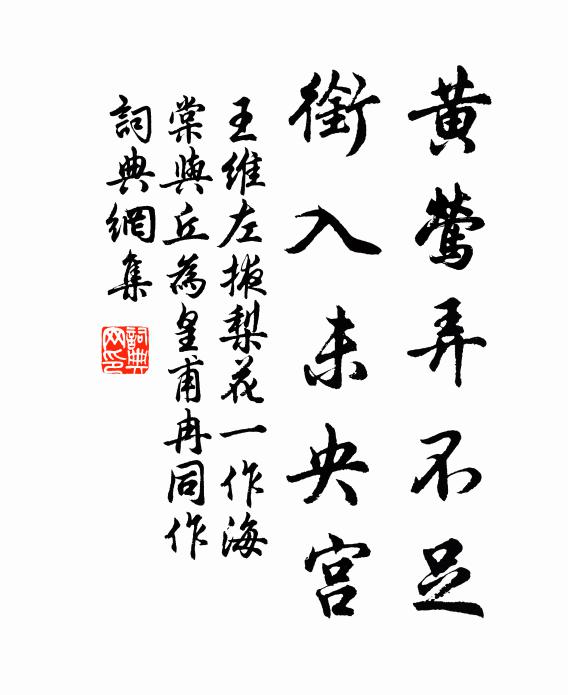 黄莺弄不足
銜入未央宫
王維左掖梨花一作海
棠與丘為皇甫冉同作
詞典網集
詞典网印